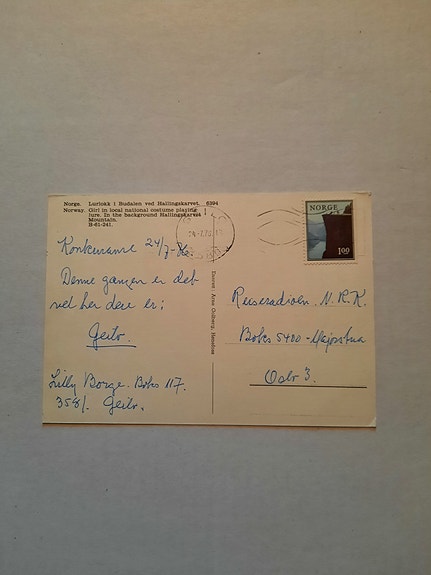 Norge. Lurlokk i Budalen ved Hallingskarvet. 6394
Norway. Girl in local national costume playing
lure. In the background Hallingskarvet
Mountain.
B-61-241.
NORGE
1.00
Konkuranse 24/7-76
Denne gangen er det
vel her dere er;
Geilo.
Lilly Borge. Boks 117.
3581. Geilo.
Eneret: Arne
Reiseradioen N.R.K.
Boks 5400-Majorstua
Oslo 3.